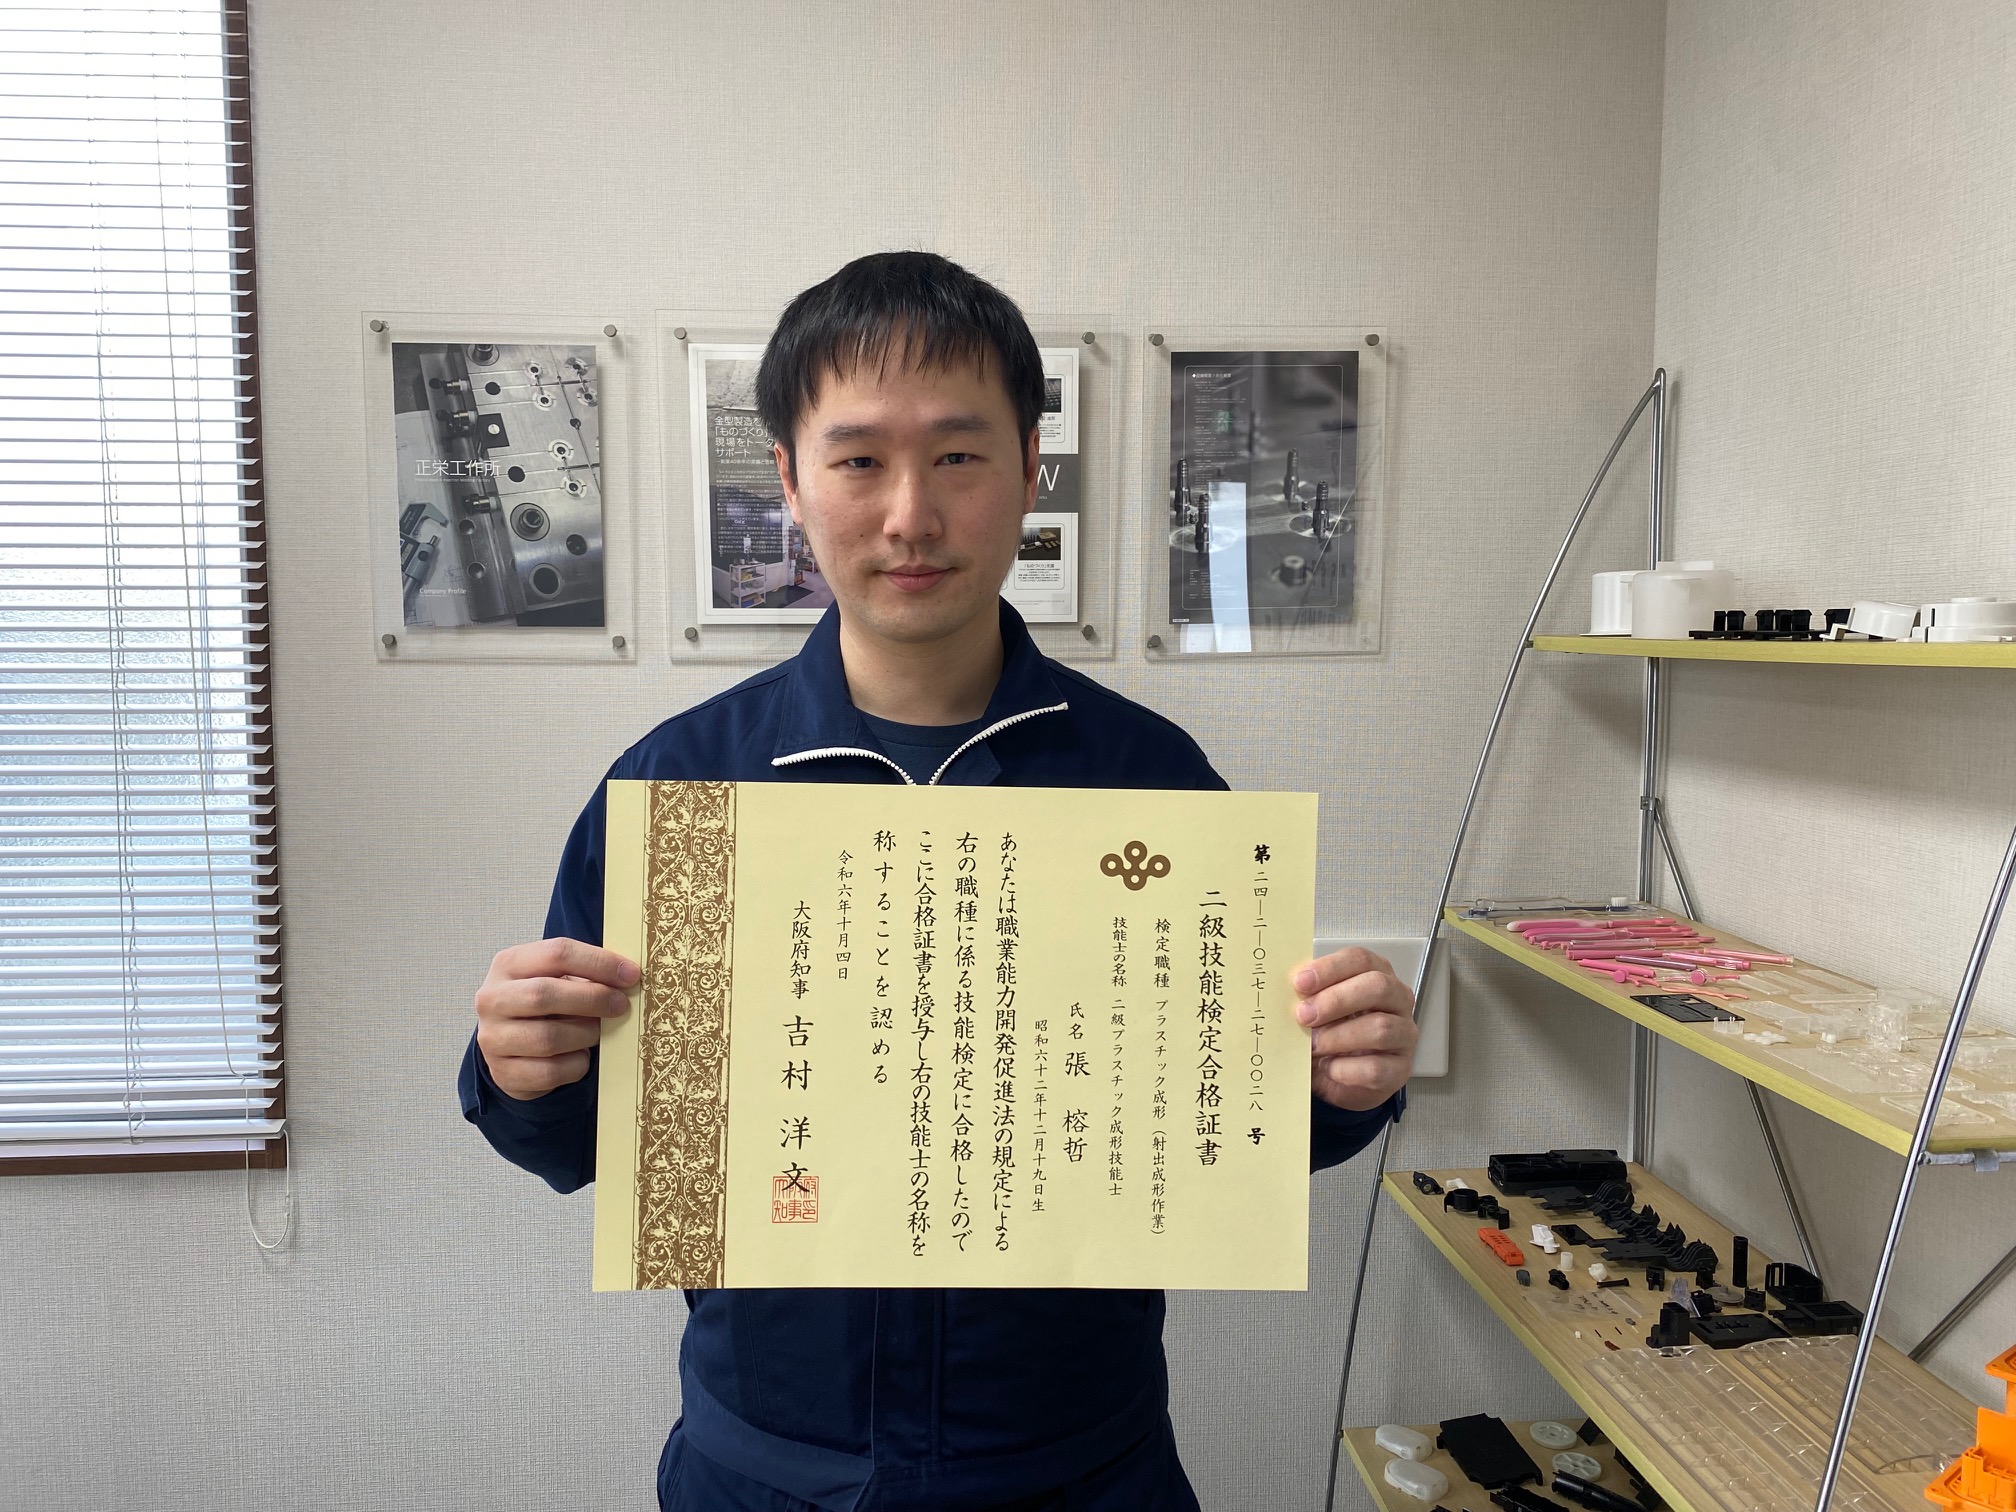 第二四―二―〇三七―二七―〇〇二八号
二級技能検定合格証書
検定職種 プラスチック成形（射出成形作業）
技能士の名称 二級プラスチック成形技能士
氏名 張 榕哲
昭和六十二年十二月十九日生
あなたは職業能力開発促進法の規定による
右の職種に係る技能検定に合格したので
ここに合格証書を授与し右の技能士の名称を
称することを認める
令和六年十月四日
大阪府知事 吉村 洋文
正栄工作所
Company Profile
金型製造を
「ものづくり」
現場をトータ
サポート
W